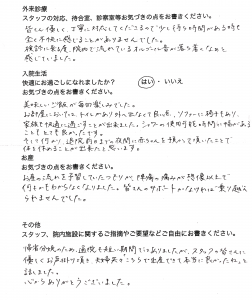 外来診療
スタッフの対応、待合室、診察室等お気づきの点をお書きください。
皆さん優しく、丁寧に対応してくださるので少しくらい待つ時間がある時も
全く不快に感じることがありませんでした。
検診に来る度、院内で流れているオルゴール音が落ち着くなと
感じていました。
入院生活
快適にお過ごしになれましたか? はい・いいえ
お気づきの点をお書きください。
美味しいご飯が毎回楽しみでした。
お部屋においても、トイレがあり外に出なくて良いし、ソファーに椅子もあり、
家族も快適に過ごすことが出来ました。シャワーの使用可能時間に幅がある
こともとても良かったです。
そして何より、退院前日まで夜間に赤ちゃんを預かって頂いたことで
体を休めることが出来たと思います。
お産
お気づきの点をお書きください。
お産の流れを予習していたつもりが、陣痛の痛みが想像以上で
何もかもわからなくなりました。皆さんのサポートがなければ乗り越え
られませんでした。
その他
スタッフ、院内施設に関するご指摘やご要望などご自由にお書きください。
帰省分娩のため、通院も短い期間ではありましたが、スタッフの皆さんに
優しくお声掛け頂き、夫婦共々こちらで出産できて本当に良かったねと
話しました。
心からありがとうございました。